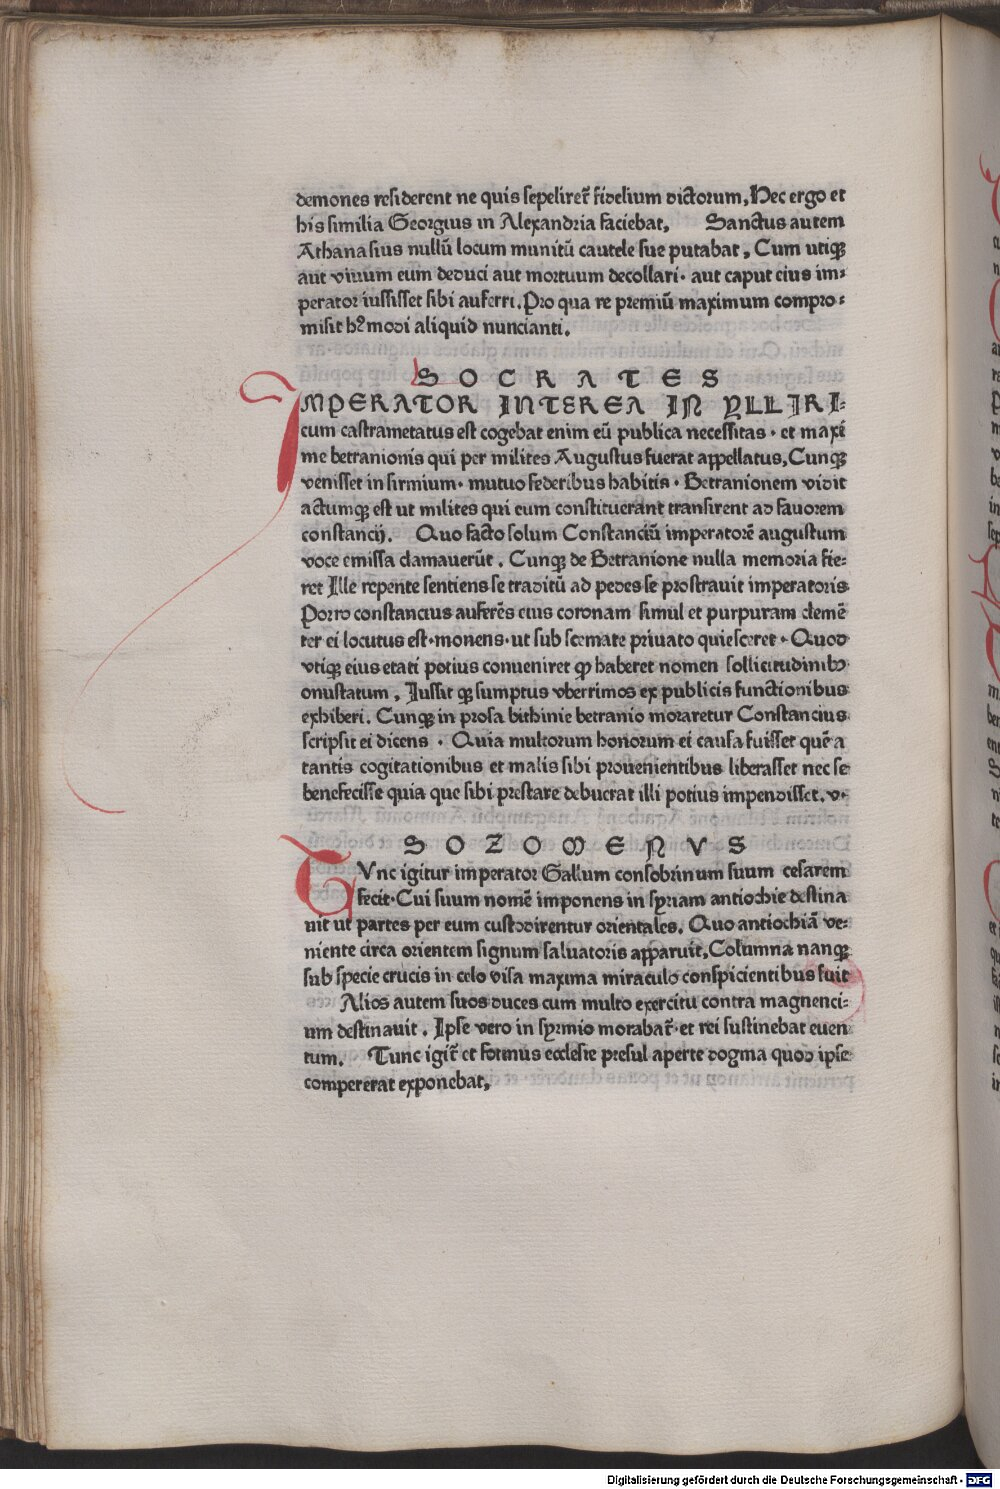 demones residerent ne quis sepeliret̃ fidelium dictorum, Hec ergo et
his similia Georgius in Alexandria faciebat, Sanctus autem
Athanasius nullũ locum munitũ cautele sue putabat, Cum utiqꝫ
aut viuum eum deduci aut mortuum decollari· aut caput eius im⸗
perator iussisset sibi auferri. Pro qua re premiũ maximum compro⸗
misit hꝰmodi aliquid nuncianti.
SOCRATES
IMPERATOR INTEREA IN YLLIRI⸗
cum castrametatus est cogebat enim eũ publica necessitas· et maxĩ
me betranionis qui per milites Augustus fuerat appellatus, Cunqꝫ
venisset in sirmium· mutuo federibus habitis· Betranionem vidit
actumqꝫ est ut milites qui eum constituerant transirent ad fauorem
constancij. Quo facto solum Constanciũ imperatorẽ augustum
voce emissa clamauerũt. Cunqꝫ de Betranione nulla memoria fie⸗
ret Ille repente sentiens se traditũ ad pedes se prostrauit imperatoris
Porro constancius auferẽs eius coronam simul et purpuram clemẽ
ter ei locutus est· monens· ut sub scemate priuato quiesceret· Quod
vtiqꝫ eius etati potius conueniret qꝫ haberet nomen sollicitudinibꝰ
onustatum, Iussit qꝫ sumptus vberrimos ex publicis functionibus
exhiberi. Cunqꝫ in prosa bithinie betranio moraretur Constancius
scripsit ei dicens· Quia multorum honorum ei causa fuisset quẽ a
tantis cogitationibus et malis sibi prouenientibus liberasset nec se
benefecisse quia que sibi prestare debuerat illi potius impendisset. v·
SOZOMENVS
TVnc igitur imperator Gallum consobrinum suum cesarem
fecit· Cui suum nomẽ imponens in syriam antiochie destina
uit ut partes per eum custodirentur orientales. Quo antiochiã ve⸗
niente circa orientem signum saluatoris apparuit, Columna nanqꝫ
sub specie crucis in celo visa maxima miraculo conspicientibus fuit
Alios autem suos duces cum multo exercitu contra magnenci⸗
um destinauit. Ipse vero in syrmio morabat̃· et rei sustinebat euen
tum. Tunc igit̃ et fotinus ecclesie presul aperte dogma quod ipse
compererat exponebat,
Digitalisierung gefördert durch die Deutsche Forschungsgemeinschaft - DFG